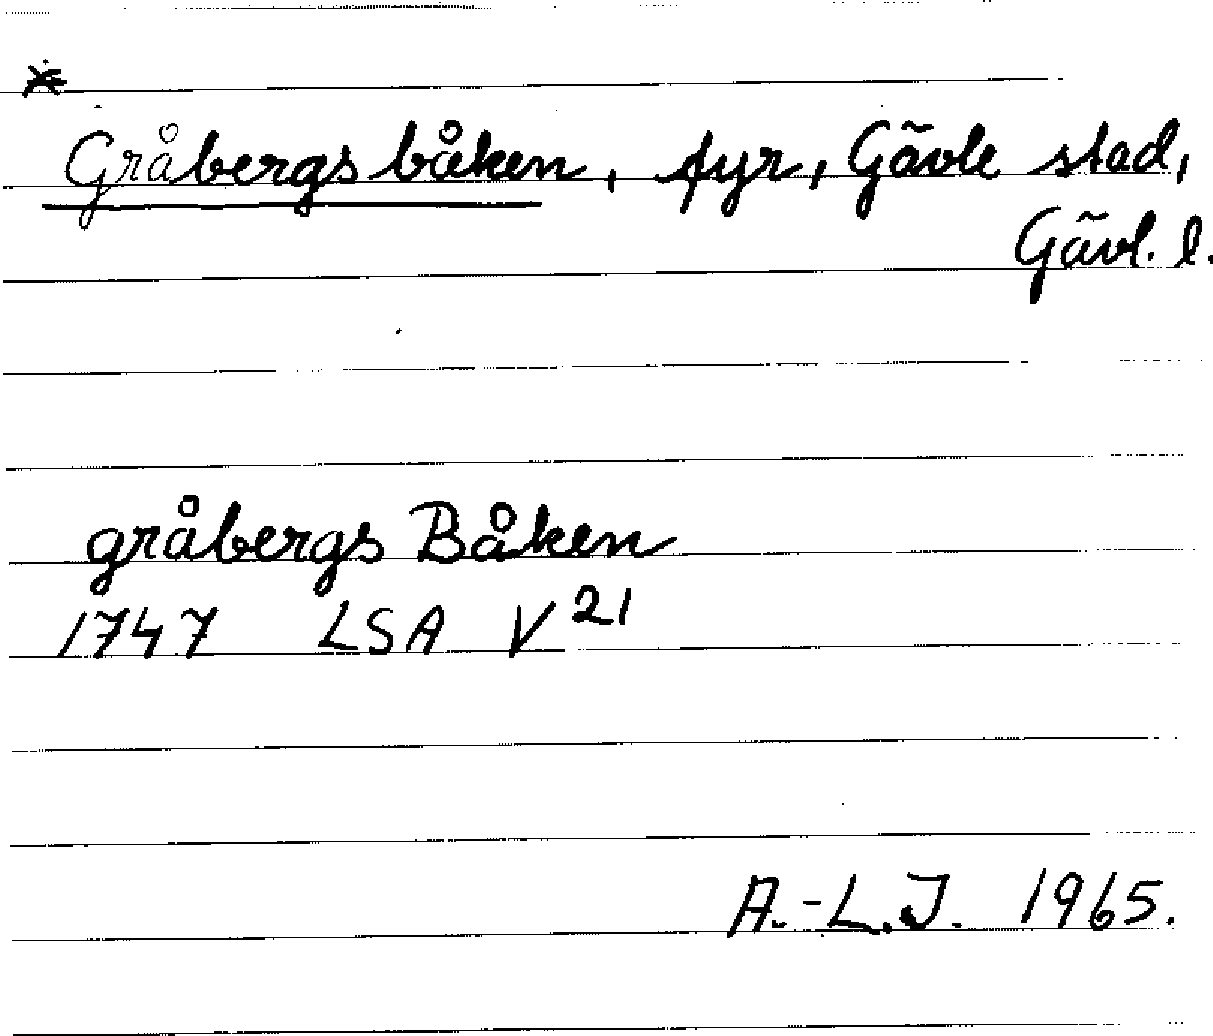 *
Gråbergsbåken, fyr, Gävle stad,
Gävl. l.
gråbergs Båken
1747 LSA V 21
A.-L.J. 1965.